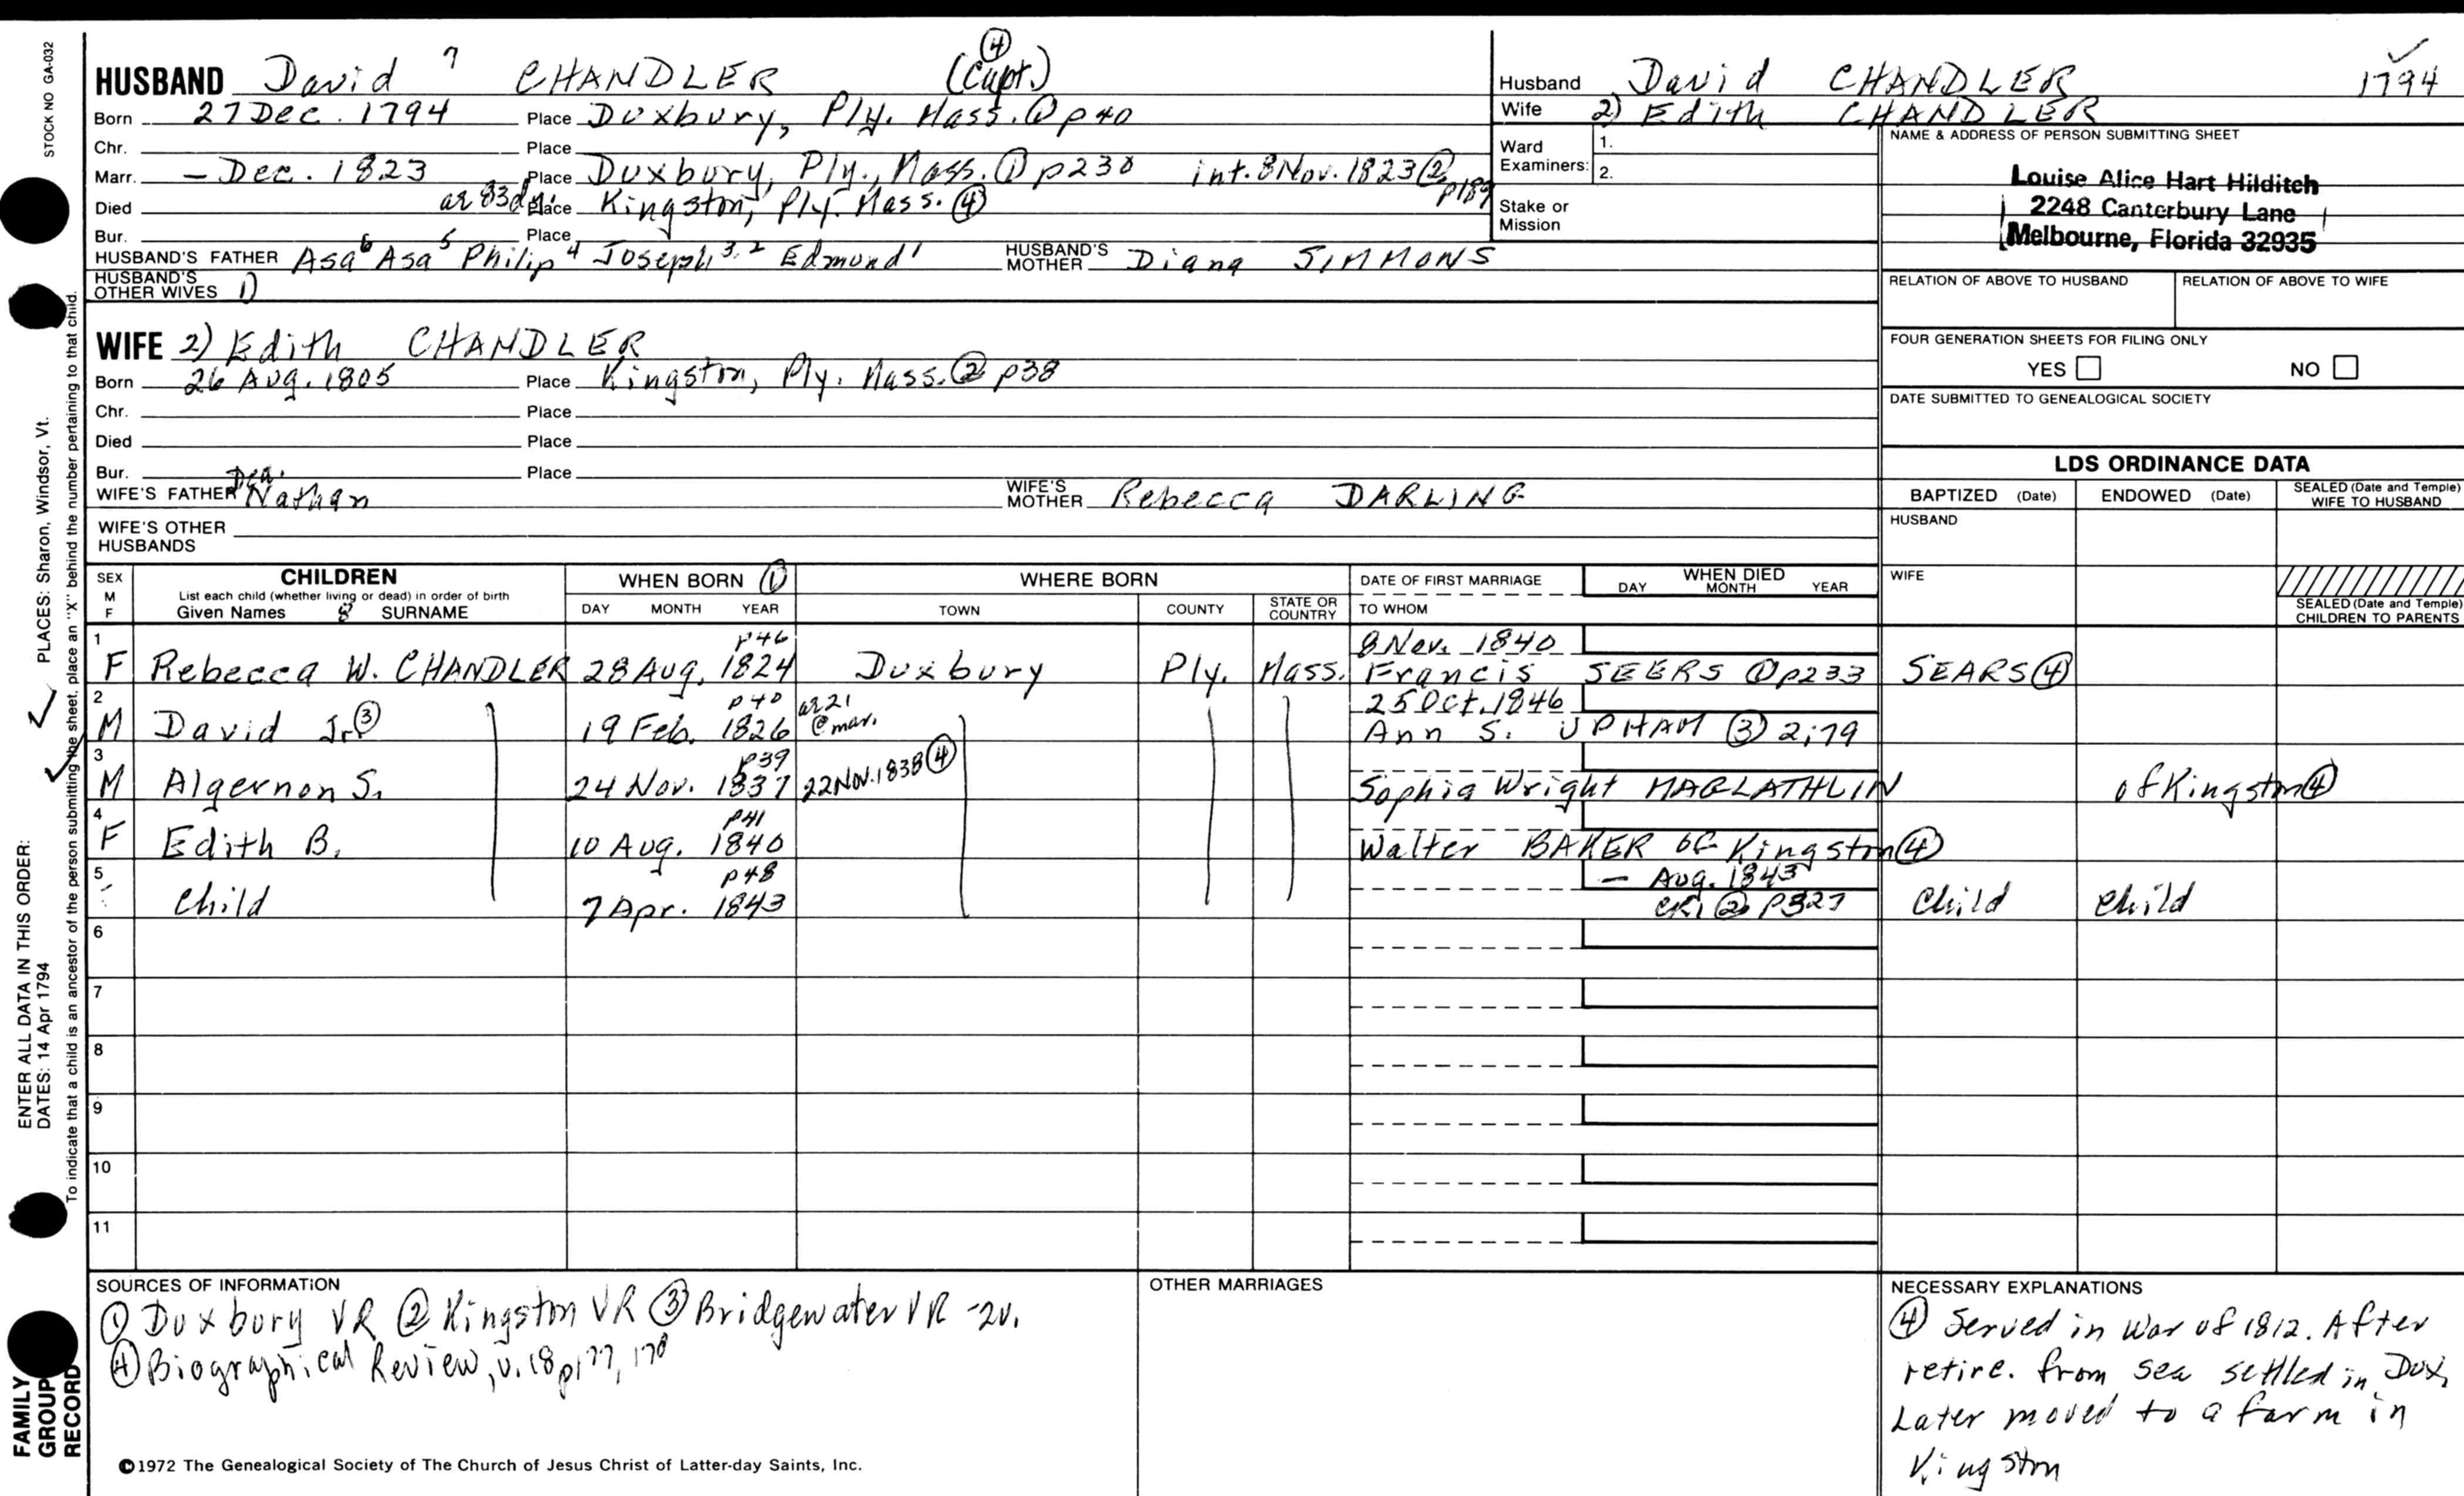 STOCK NO GA-032
HUSBAND David 7 CHANDLER (Capt.) ④
Born 27 Dec. 1794 Place Duxbury, Ply. Mass. ① p40
Chr. Place
Marr. — Dec. 1823 Place Duxbury, Ply., Mass. ① p230 int. 8 Nov. 1823 ② p189
Died ae 83 Place Kingston, Ply. Mass. ④
Bur. Place
HUSBAND'S FATHER Asa 6 Asa 5 Philip 4 Joseph 3,2 Edmund 1 HUSBAND'S MOTHER Diana SIMMONS
HUSBAND'S OTHER WIVES 1)
WIFE 2) Edith CHANDLER
Born 26 Aug. 1805 Place Kingston, Ply. Mass. ② p38
Chr. Place
Died Place
Bur. Place
WIFE'S FATHER Dea. Nathan WIFE'S MOTHER Rebecca DARLING
WIFE'S OTHER HUSBANDS
Husband David CHANDLER 1794
Wife 2) Edith CHANDLER
Ward Examiners: 1.
2.
Stake or Mission
NAME & ADDRESS OF PERSON SUBMITTING SHEET
Louise Alice Hart Hilditch
2248 Canterbury Lane
Melbourne, Florida 32935
RELATION OF ABOVE TO HUSBAND RELATION OF ABOVE TO WIFE
FOUR GENERATION SHEETS FOR FILING ONLY
YES NO
DATE SUBMITTED TO GENEALOGICAL SOCIETY
LDS ORDINANCE DATA
BAPTIZED (Date) ENDOWED (Date) SEALED (Date and Temple) WIFE TO HUSBAND
HUSBAND
WIFE
SEALED (Date and Temple) CHILDREN TO PARENTS
SEX M F CHILDREN WHEN BORN ① WHERE BORN DATE OF FIRST MARRIAGE WHEN DIED
List each child (whether living or dead) in order of birth
Given Names 8 SURNAME DAY MONTH YEAR TOWN COUNTY STATE OR COUNTRY TO WHOM DAY MONTH YEAR
1 p46 8 Nov. 1840
F Rebecca W. CHANDLER 28 Aug. 1824 Duxbury Ply. Mass. Francis SEERS ① p233 SEARS ④
2 p40 ae 21 @ mar. 25 Oct. 1846
M David Jr. ③ 19 Feb. 1826 Ann S. UPHAM ③ 2;79
3 p39
M Algernon S. 24 Nov. 1837 22 Nov. 1838 ④ Sophia Wright MAGLATHLIN of Kingston ④
4 p41
F Edith B. 10 Aug. 1840 Walter BAKER of Kingston ④
5 p48 — Aug. 1843
Child 7 Apr. 1843 CR1 ② p327 Child Child
6
7
8
9
10
11
SOURCES OF INFORMATION
① Duxbury VR ② Kingston VR ③ Bridgewater VR - 2v.
④ Biographical Review, v. 18 p177, 178
OTHER MARRIAGES
NECESSARY EXPLANATIONS
④ Served in War of 1812. After
retire. from sea settled in Dux.
Later moved to a farm in
Kingston
©1972 The Genealogical Society of The Church of Jesus Christ of Latter-day Saints, Inc.
FAMILY GROUP RECORD
ENTER ALL DATA IN THIS ORDER:
DATES: 14 Apr 1794 PLACES: Sharon, Windsor, Vt.
To indicate that a child is an ancestor of the person submitting the sheet, place an "X" behind the number pertaining to that child.